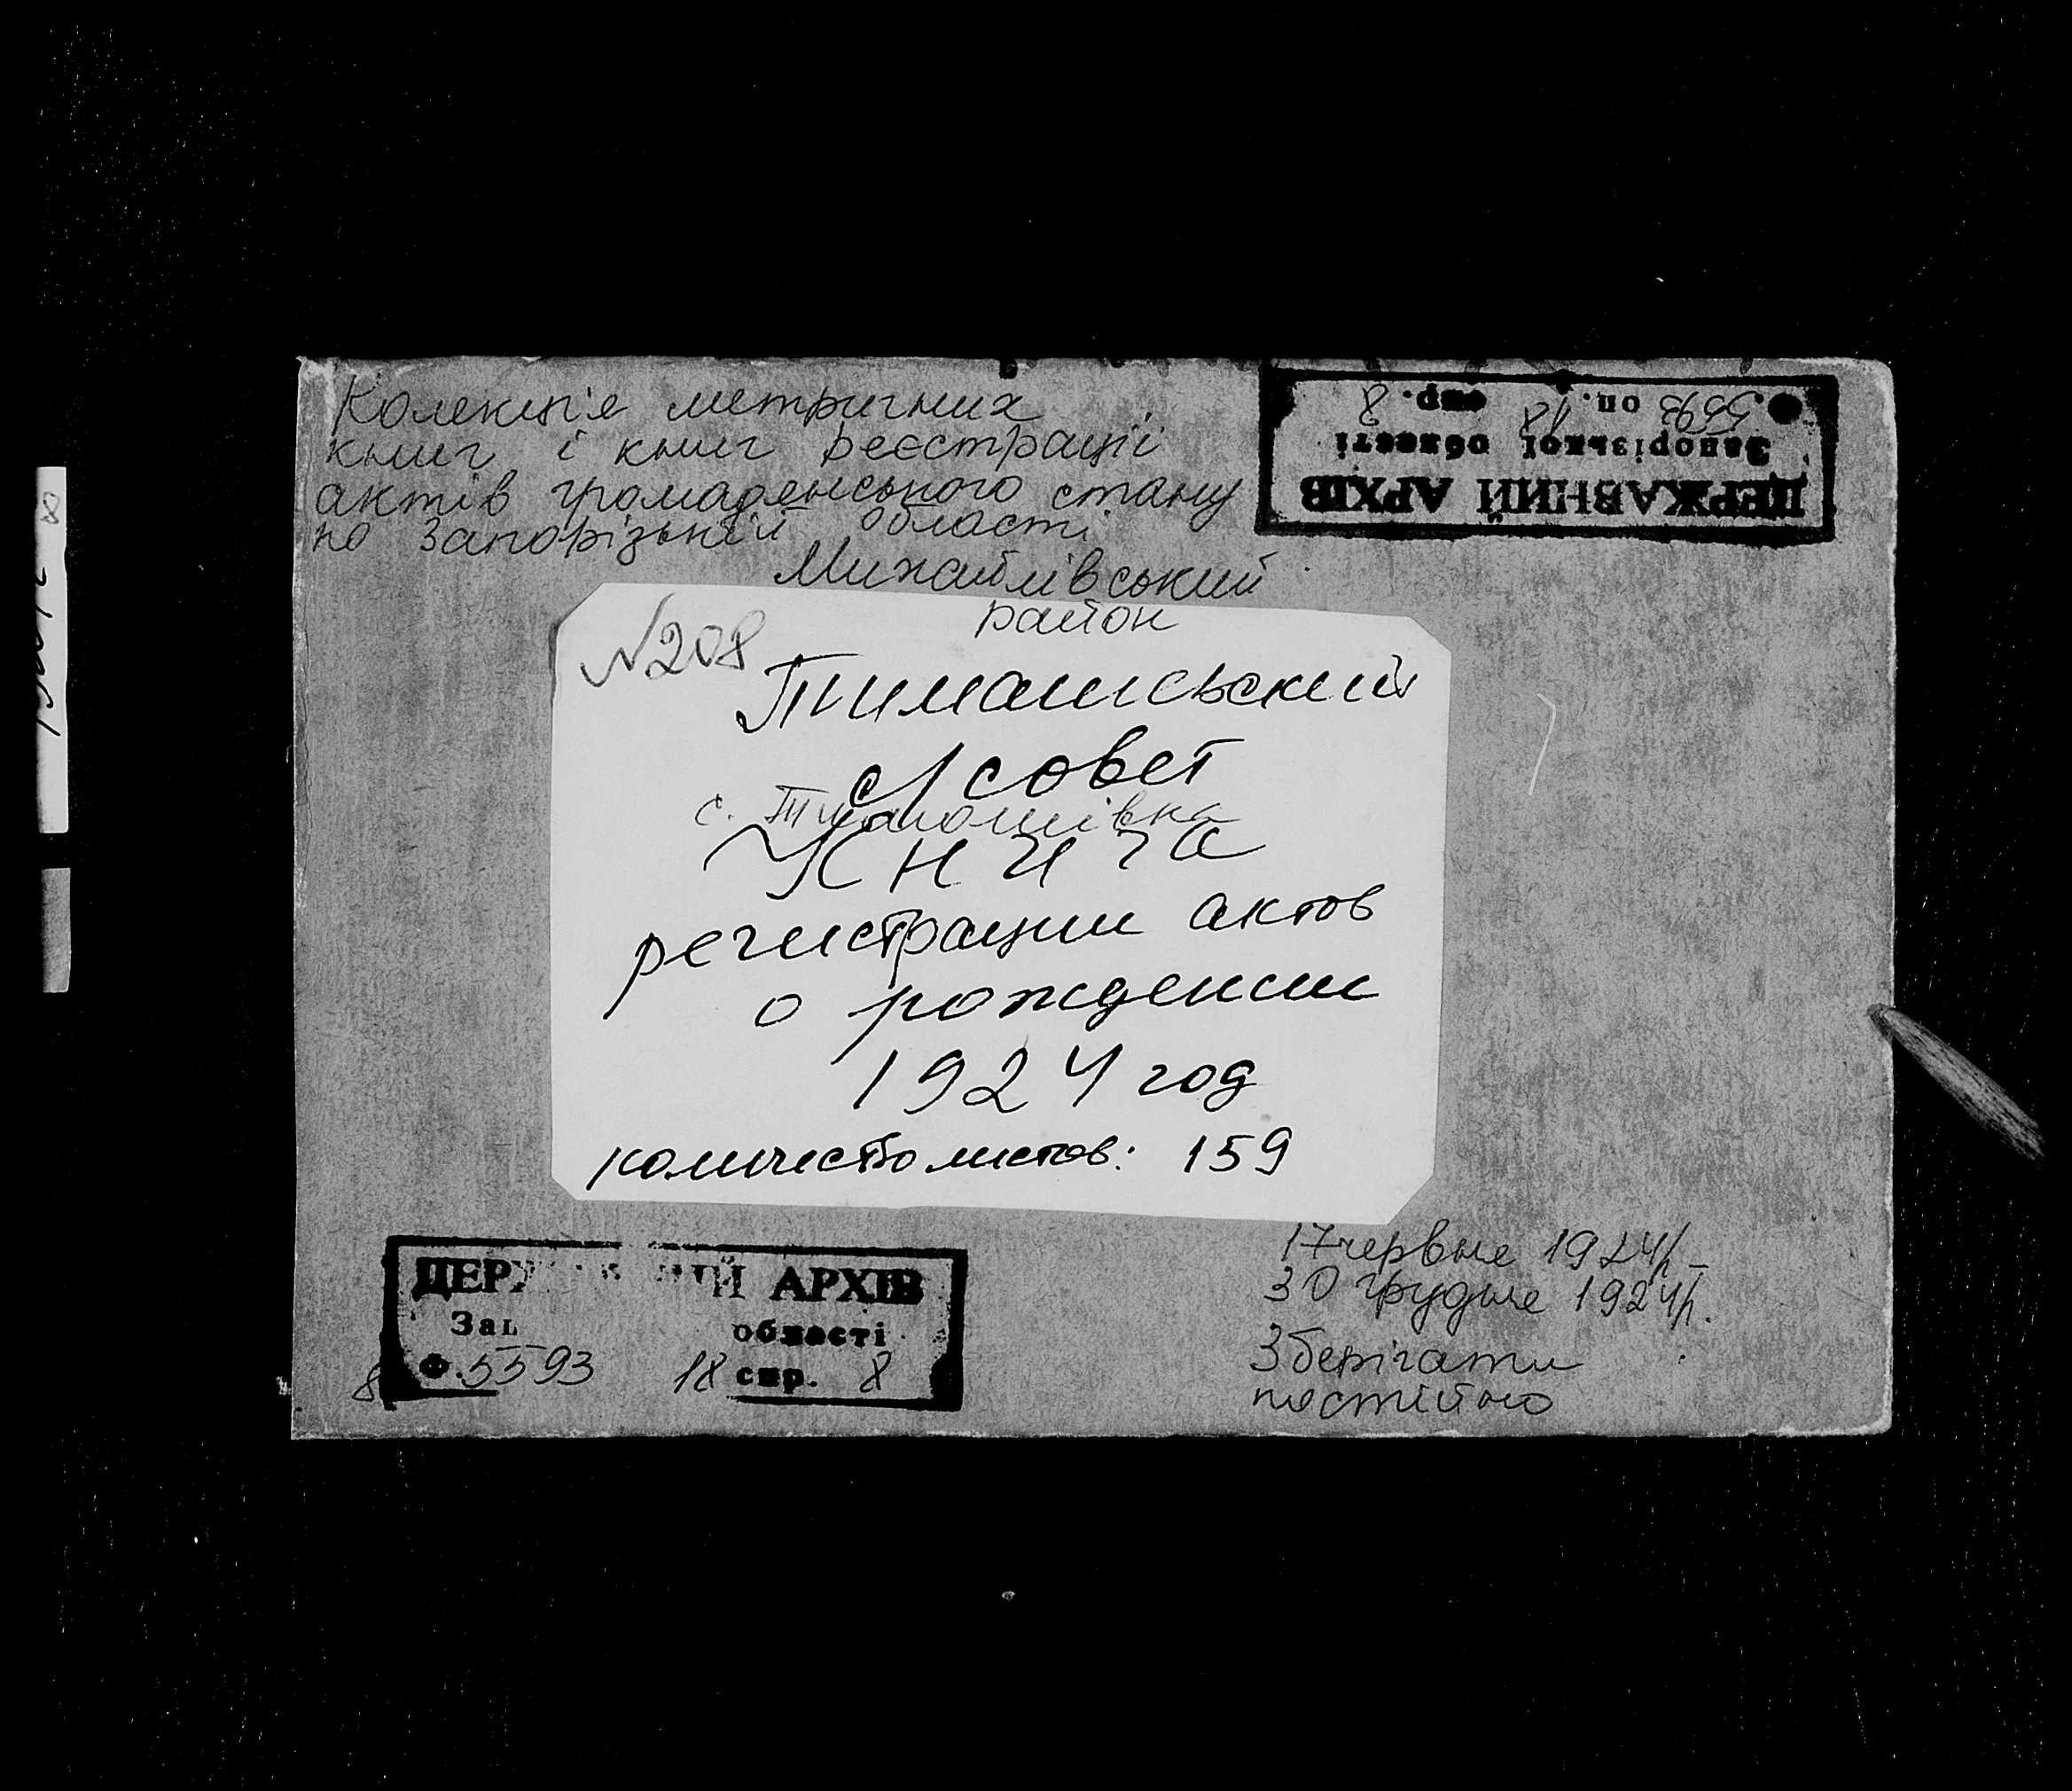 Колекція метричних
книг і книг реєстрації
актів громадянського стану
по Запорізькій області
Михайлівський
район
ДЕРЖАВНИЙ АРХІВ
Запорізької області
5593 оп. 18 спр. 8
№208
Тимашевский
с/совет
с. Тимошівка
Книга
регистрации актов
о рождении
1924 год
количество листов: 159
17 червня 1924р –
30 грудня 1924р.
Зберігати
постійно
ДЕР ИЙ АРХІВ
Зап області
Ф. 5593 18 спр. 8
8